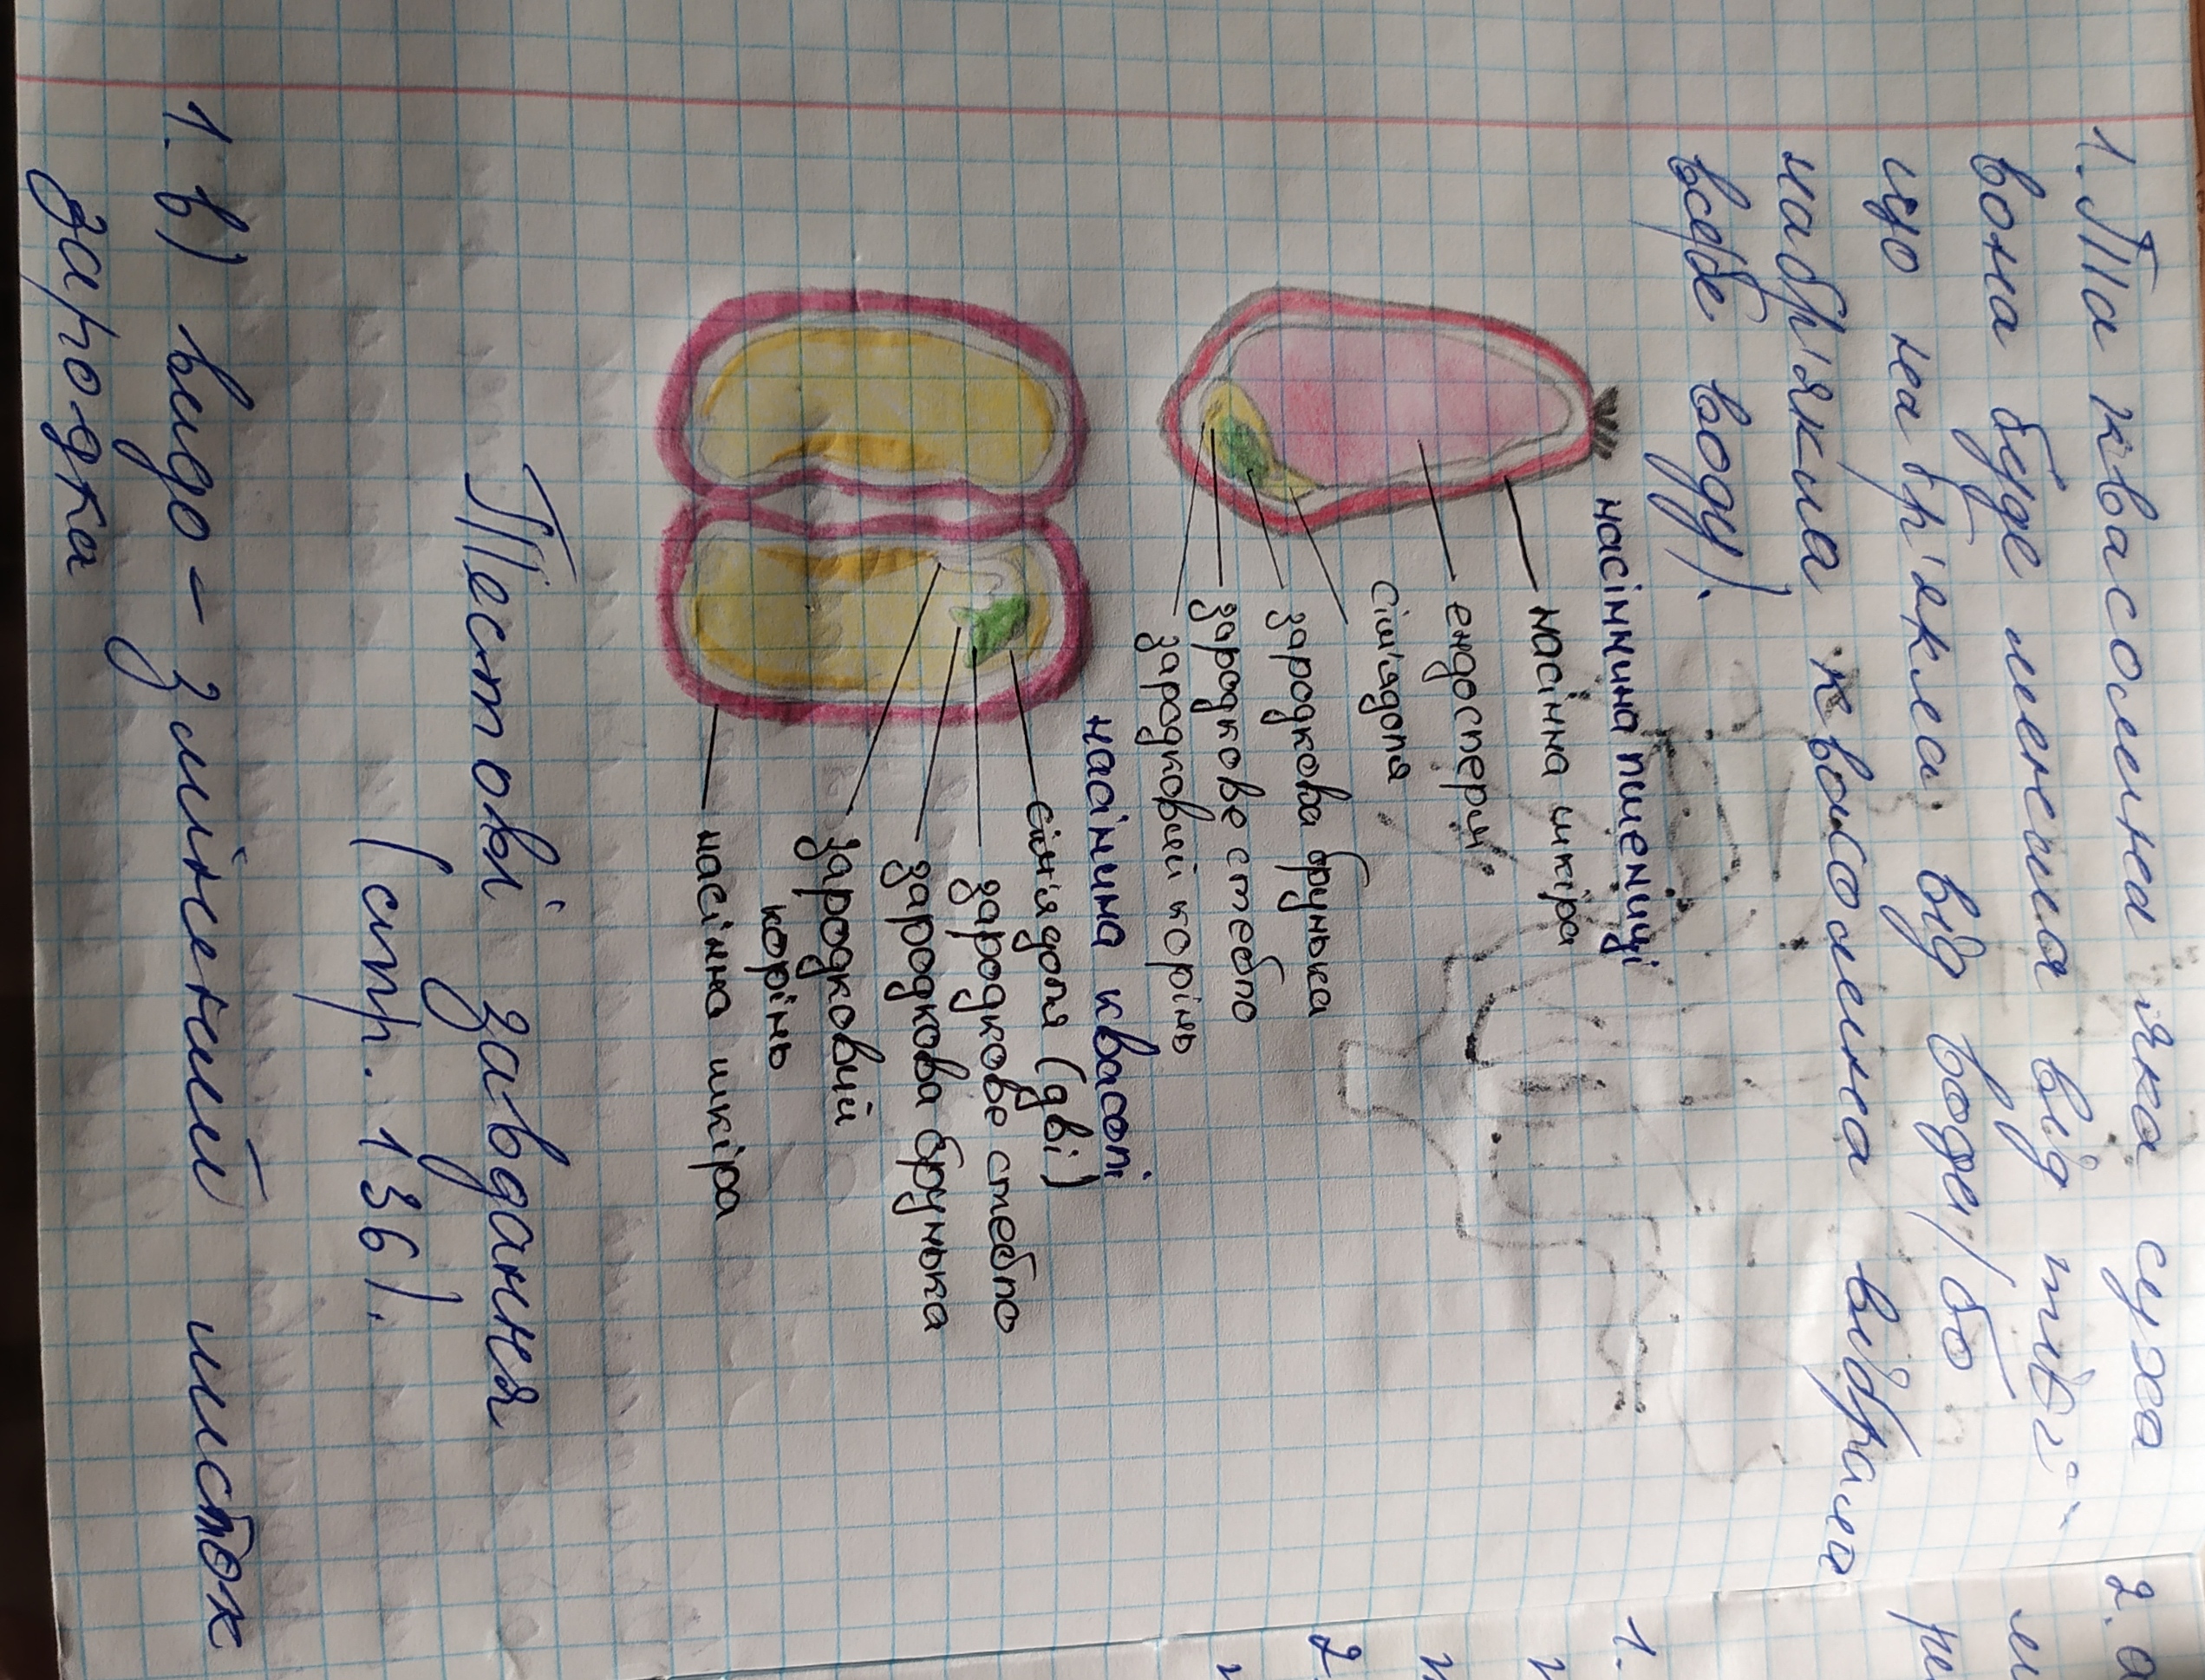 1. Та квасолина яка суха
вона буде менша від тієї
що набр'якла від води (бо
набр'якла квасолина вібрала
всебе воду).
насіннина пшениці
насінна шкіра
ендосперм
сім'ядоля
зародкова брунька
зародкове стебло
зародковий корінь
насінина квасолі
сім'ядоля (дві)
зародкове стебло
зародкова брунька
зародковий
корінь
насінна шкіра
Тестові завдання
(стр. 136).
1. в) видо-змінений листок
зародка
2.
1.
2.